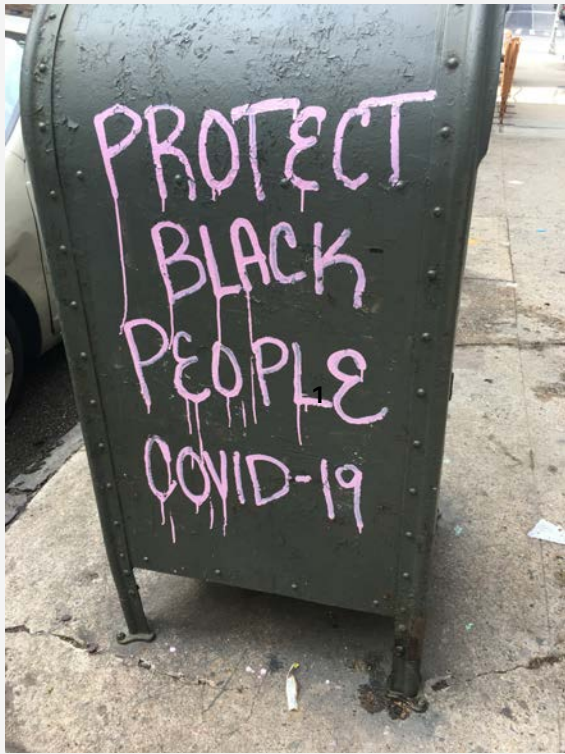 PROTECT
BLACK
PEOPLE
1
COVID-19